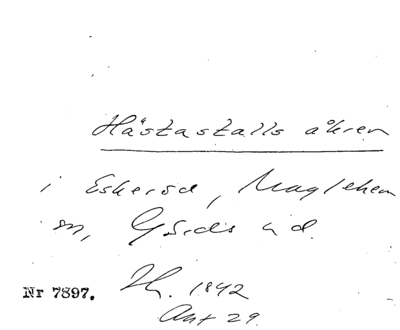 Hästastalls åkren
i Eskered, Maglehem
sn, Gärds hd.
Nr 7897. Th. 1842
Akt 29.